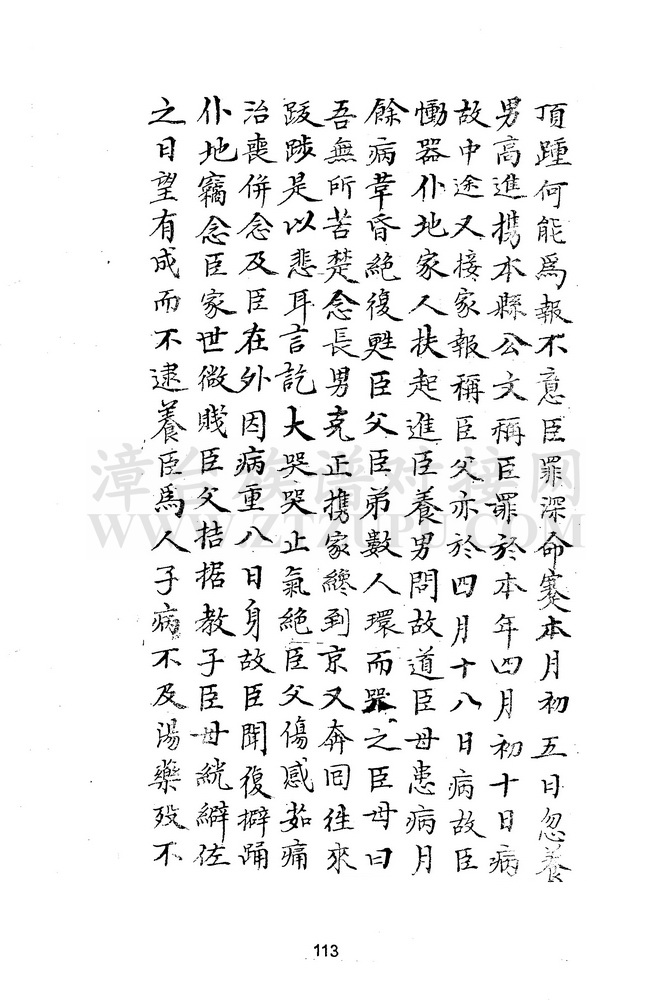 頂踵何能爲報不意臣罪深命蹇本月初五日忽養
男高進擕本縣公文稱臣罪於本年四月初十日病
故中途又接家報稱臣父亦於四月十八日病故臣
慟器仆地家人扶起進臣養男問故道臣母患病月
餘病革昏絶復甦臣父臣弟數人環而哭之臣母曰
吾無所苦楚念長男克正擕家纔到京又奔回徃來
跋踄是以悲耳言訖大哭哭止氣絶臣父傷感茹痛
治喪併念及臣在外因病重八日身故臣聞復擗踊
仆地竊念臣家世微賤臣父拮据教子臣母絖澼佐
之日望有成而不逮養臣爲人子病不及湯藥殁不
漳台族谱对接网
WWW.ZTZUPU.COM
113